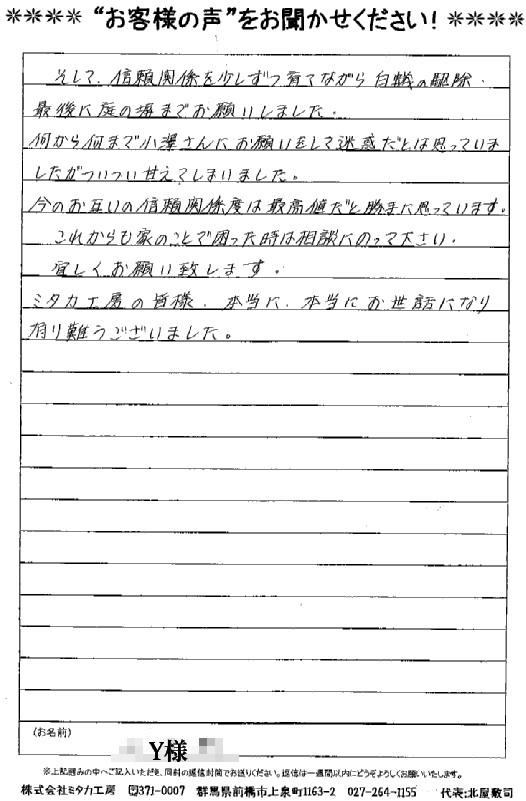 ＊＊＊＊ “お客様の声”をお聞かせください！ ＊＊＊＊
そして、信頼関係を少しずつ育てながら白蟻の駆除、
最後に庭の塀までお願いしました。
何から何まで小澤さんにお願いをして迷惑だとは思っていま
したがついつい甘えてしまいました。
今のお互いの信頼関係度は最高値だと勝手に思っています。
これからも家のことで困った時は相談にのって下さい。
宜しくお願い致します。
ミタカ工房の皆様、本当に、本当にお世話になり
有り難うございました。
(お名前)
Y様
※上記囲みの中へご記入いただき、同封の返信封筒でお送りください。返信は一週間以内にどうぞよろしくお願いいたします。
株式会社ミタカ工房 〒371-0007 群馬県前橋市上泉町1163-2 027-264-1155 代表:北屋敷司